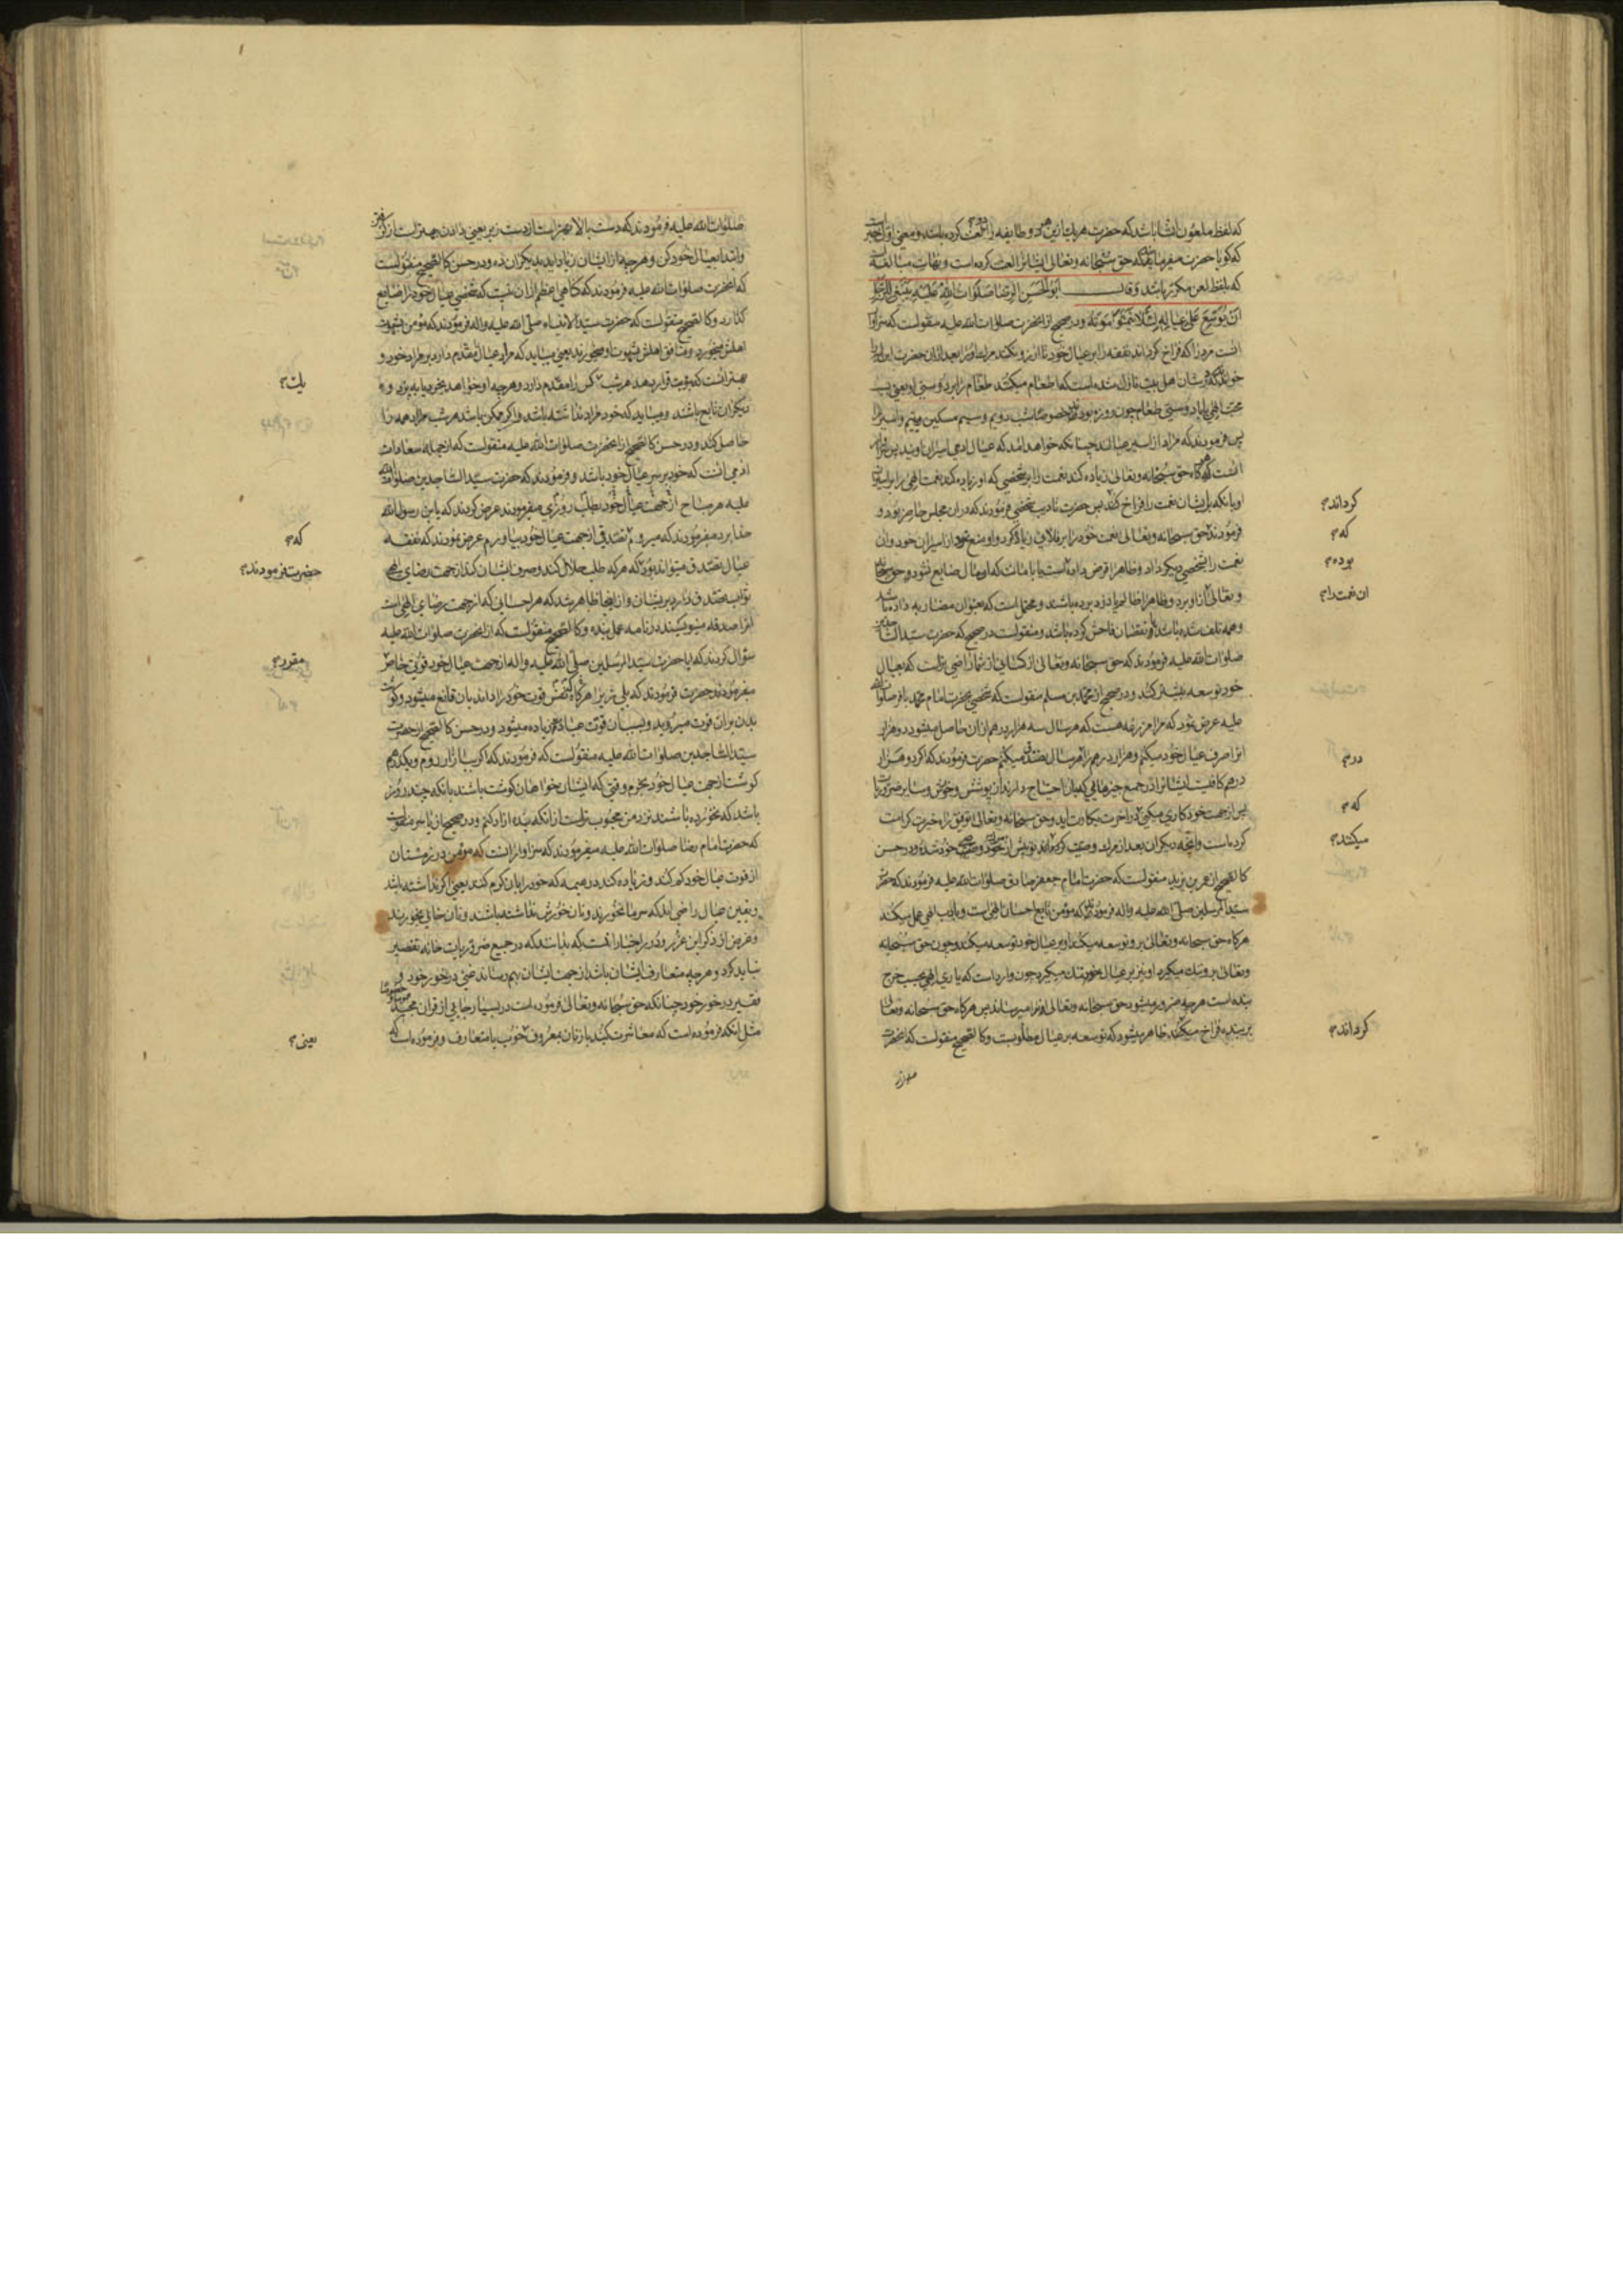 که لفظ ملعون انشا باشد که حضرت هر یك ازین دو طایفه را لعنت کرده باشد و معنی اول خبر است
که کویا حضرت میفرماید که حق سبحانه وتعالی ایشانرا لعنت کرده است و نهایت مبالغه است
که بلفظ لعن مکرر باشد وقال ابوالحسن الرضا صلوات الله علیه ینبغی للرجل
ان یوسع علی عیاله لئلا یتمنوا موته ودر صحیح از انحضرت صلوات الله علیه منقولست که سزاوار
انست مرد را که فراخ کرداند نفقه را بر عیال خود تا ارزو نکنند مردن او را بعد ازان حضرت این ایه را
خواندند که در شان اهل بیت نازل شده است که اطعام میکنند طعام را بر دوستی او یعنی بسبب
محبت الهی یا با دوستی طعام چون روزه بودند خصوصا شب دویم و سیم مسکین و یتیم و اسیر را
پس فرمودند که مراد از اسیر عیالند چنانکه خواهد امد که عیال ادمی اسیران اویند پس سزاوار
انست که هرکاه حق سبحانه وتعالی زیاده کند نعمت را بر شخصی که او زیاده کند نعمت الهی را بر اسیران
او بانکه بر ایشان نعمت را فراخ کند پس حضرت تادیب شخصی فرمودند که دران مجلس حاضر بود و
فرمودند حق سبحانه وتعالی نعمت خود را بر فلانی زیاده کرد و او منع نمود از اسیران خود وان
نعمت را بشخصی دیکر داد وظاهرا قرض داده است یا بامانت که او مال ضایع نشود و حق سبحانه
وتعالی از او برد وظاهرا ظالم یا دزد برده باشند و محتمل است که بعنوان مضاربه داده باشد
وهمه تلف شده باشد یا نقصان فاحش کرده باشد و منقولست در صحیح که حضرت سید الساجدین
صلوات الله علیه فرمودند که حق سبحانه وتعالی از کسانی از شما راضی تر است که بعیال
خود توسعه بیشتر کند ودر صحیح از محمد بن مسلم منقولست که شخصی بحضرت امام محمد باقر صلوات الله
علیه عرض نمود که مرا مزرعه هست که هر سال سه هزار درهم ازان حاصل میشود دو هزار
انرا صرف عیال خود میکنم وهزار درهم را هر سال تصدق میکنم حضرت فرمودند که اکر دو هزار
درهم کافیست ایشانرا در جمیع چیزهائی که بان احتیاج دارند از پوشش و خورش وسایر ضروریات
پس از جهت خود کاری میکنی در اخرت بکارت اید وحق سبحانه وتعالی توفیق راه خیرت کرامت
کرده است وانچه دیکران بعد از مردن وصیت کرده اند تو پیش از خود وصی خود شده ودر حسن
کالصحیح از عمر بن یزید منقولست که حضرت امام جعفر صادق صلوات الله علیه فرمودند که حضرت
سید المرسلین صلی الله علیه واله فرمودند که مؤمن تابع احسان الهی است و بادب الهی عمل میکند
هرکاه حق سبحانه وتعالی برو توسعه میکند او بر عیال خود توسعه میکند وچون حق سبحانه
وتعالی برو تنك میکیرد او نیز بر عیال خود تنك میکیرد چون وارد است که یاری الهی بحسب خرج
بنده است هرچه ضرور میشود حق سبحانه وتعالی او را میرساند پس هرکاه حق سبحانه وتعالی
بر بنده فراخ میکند ظاهر میشود که توسعه بر عیال مطلوبست وکالصحیح منقولست که انحضرت
صلوات
کرداند
که
بوده
ان نعمت را
درم
که
میکنند
کرداند
صلوات الله علیه فرمودند که دست بالا بهتر است از دست زیر یعنی دادن بهتر است از کرفتن
وابتدا بعیال خود کن وهرچه از ایشان زیاد اید بدیکران ده ودر حسن کالصحیح منقولست
که انحضرت صلوات الله علیه فرمودند که کناهی عظیمتر ازان نیست که شخصی عیال خود را ضایع
کذارد وکالصحیح منقولست که حضرت سید الانبیاء صلی الله علیه واله فرمودند که مؤمن بشهوت
اهلش میخورد ومنافق اهلش بشهوت او میخورند یعنی میباید که مراد عیال را مقدم دارد بر مراد خود و
بهتر انست که نوبت قرار دهد هر شب کس را مقدم دارد وهرچه او خواهد بخرد یا بپزد و
دیکران تابع باشند ومیباید که خود مراد نداشته باشد واکر ممکن باشد هر شب مراد همه را
حاصل کند ودر حسن کالصحیح از انحضرت صلوات الله علیه منقولست که از جمله سعادات
ادمی انست که خود بر سر عیال خود باشد وفرمودند که حضرت سید الساجدین صلوات الله
علیه هر صباح از جهت عیال خود بطلب روزی میفرمودند عرض کردند که یا بن رسول الله
کجا میروید میفرمودند که میروم تصدقی از جهت عیال خود بیاورم عرض نمودند که نفقه
عیال تصدق میتواند بود که هرکه طلب حلال کند وصرف ایشان کند از جهت رضای الهی
ثواب تصدق دارد بر ایشان واز اینجا ظاهر شد که هر احسانی که از جهت رضای الهی است
انرا صدقه مینویسند در نامه عمل بنده وکالصحیح منقولست که از انحضرت صلوات الله علیه
سؤال کردند که ایا حضرت سید المرسلین صلی الله علیه واله از جهت عیال خود قوتی خاص
میفرمودند حضرت فرمودند که بلی زیرا هرکاه نفس قوت خود را داند بان قانع میشود وکوشت
بدن بران قوت میروید وبسبب ان قوت عبادت زیاده میشود ودر حسن کالصحیح از حضرت
سید الساجدین صلوات الله علیه منقولست که فرمودند که اکر ببازار روم وبیکدرهم
کوشت از جهت عیال خود بخرم وقتی که ایشان خواهان کوشت باشند بانکه چند روز
باشد که نخورده باشند نزد من محبوب تر است از انکه بنده ازاد کنم ودر صحیح از یاسر منقولست
که حضرت امام رضا صلوات الله علیه میفرمودند که سزاوار انست که مؤمن در زمستان
از قوت عیال خود کم کند وزیاده کند در هیمه که خود را بان کرم کنند یعنی اکر نداشته باشد
ویقین عیال راضی اند که سرما نخورند ونان خورش نداشته باشند ونان خالی بخورند
وغرض از ذکر این عزیز ودر اخبار انست که بدانند که در جمیع ضروریات خانه تقصیر
نباید کرد وهرچه متعارف ایشان باشد از جهت ایشان بهم رساند غنی در خور خود و
فقیر در خور خود چنانکه حق سبحانه وتعالی فرموده است در بسیار جایی از قران مجید خصوصا
مثل انکه فرموده است که معاشرت کنید با زنان بمعروف خوب یا متعارف وفرموده است که
یك
که
حضرت فرمودند
مقرر
یعنی